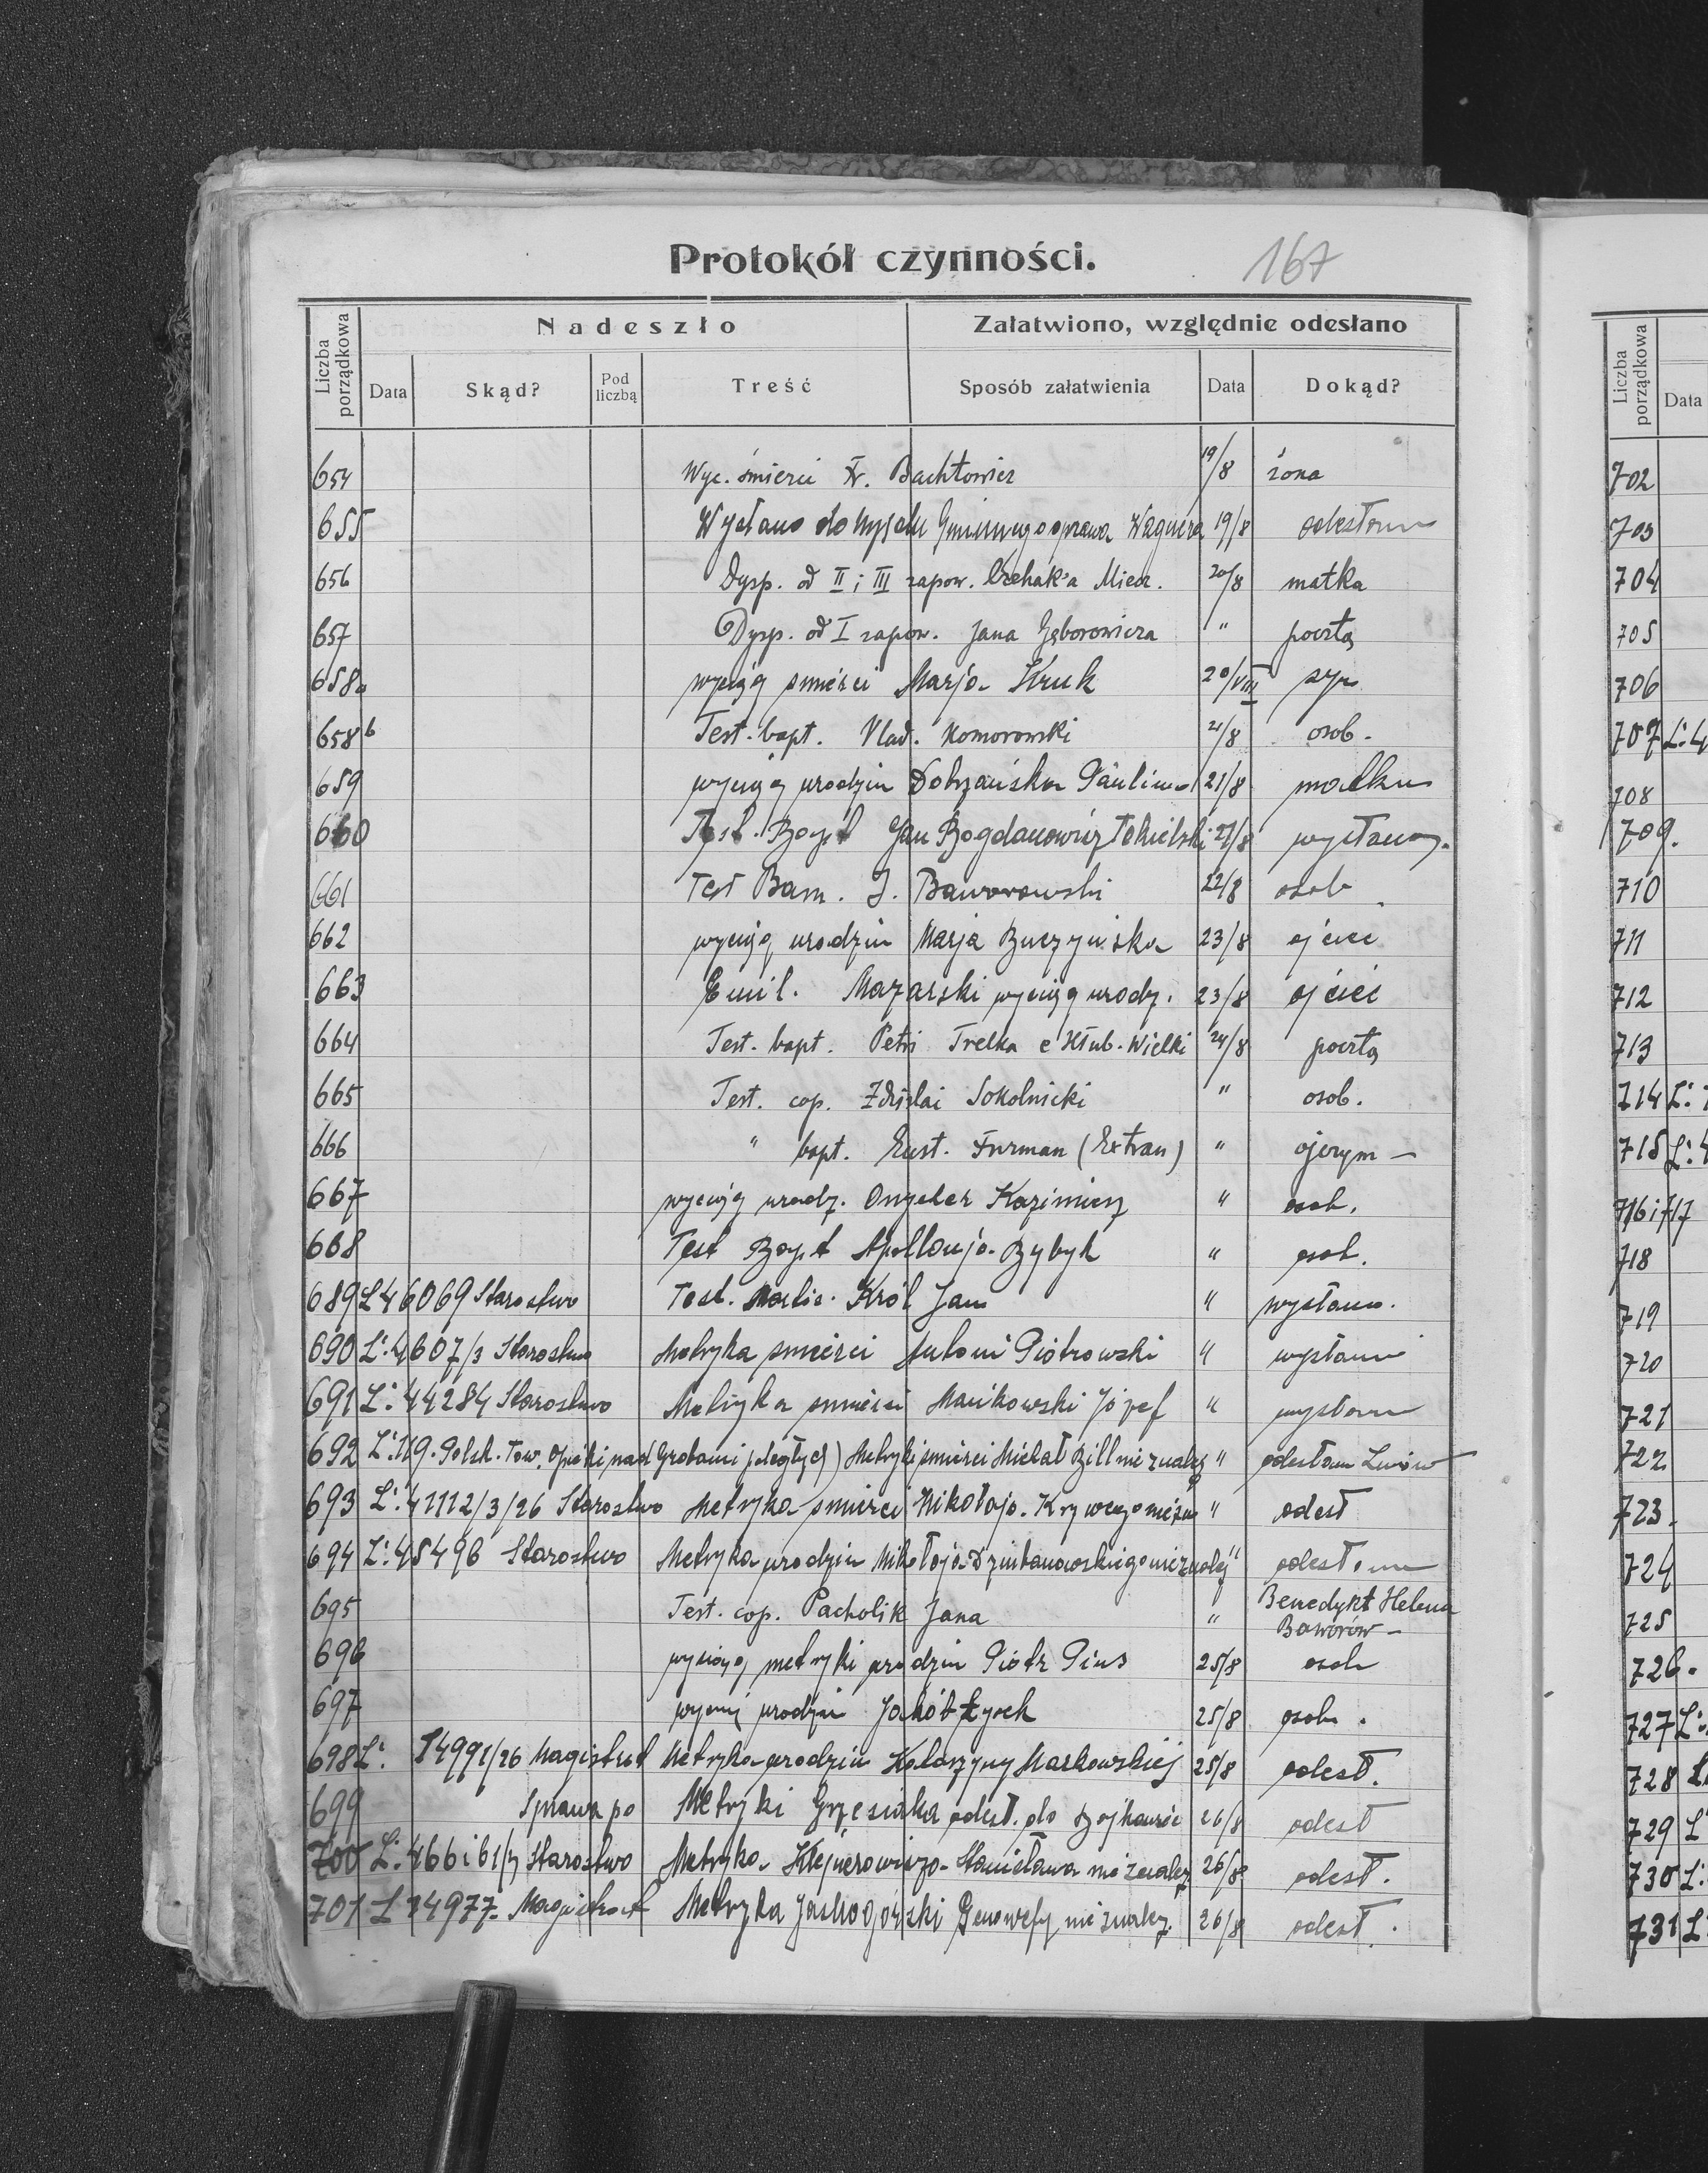 Protokół czynności.
167
Liczba porządkowa
Nadeszło
Załatwiono, względnie odesłano
Data
Skąd?
Pod liczbą
Treść
Sposób załatwienia
Data
Dokąd?
654 Wyc. śmierci Bachtowicz 19/8 żona
655 Wysłano do Gminnego sprawa Wagnera 19/8 odesłano
656 Dysp. od II i III zapow. Miecz. 20/8 matka
657 Dysp. od I zapow. Jana Gąborowicza " pocztą
658a wyciąg śmierci Marja Kruk 20/VIII syn
658b Test. bapt. Vlad. Komorowski 21/8 osob.
659 wyciąg urodzin Dobrzańska Paulina 21/8 matka
660 Test. Bapt Jan Bogdanowicz 21/8 wysłano.
661 Test Bann. J. Baworowski 22/8 osob
662 wyciąg urodzin Marja Buczyńska 23/8 ojciec
663 Emil. Mazarski wyciąg urodz. 23/8 ojciec
664 Test. bapt. Petri Trelka e Hłub. Wielki 24/8 pocztą
665 Test. cop. Zdzislai Sokolnicki " osob.
666 " bapt. Eust. Furman (Extran) " ojczym —
667 wyciąg urodz. Kazimierz " osob.
668 Test Bapt Apollonja Bybyk " osob.
689 L 46069 Starostwo Test. Król Jan " wysłano.
690 L: 4607/3 Starostwo Metryka śmierci Antoni Piotrowski " wysłano
691 L: 44284 Starostwo Metryka śmierci Mańkowski Józef " wysłano
692 L: 119. Polsk. Tow. Opieki nad Grobami poległych) Metryki śmierci Michał Bill nie znalez " odesłano Lwów
693 L: 41112/3/26 Starostwo Metryka śmierci Mikołaja " odesł
694 L: 45496 Starostwo Metryka urodzin Mikołaja nie znalez " odesłano
695 Test. cop. Pacholik Jana " Benedykt Helena
Baworów —
696 wyciąg metryki urodzin Piotr Pius 25/8 osob
697 wyciąg urodzin Jakób Łysek 25/8 osob.
698 L: 14991/26 Magistrat Metryka urodzin Katarzyny Markowskiej 25/8 odesł.
699 Sprawa po Metryki Grzesiaka odesł. do 26/8 odesł
700 L: 466i61/7 Starostwo Metryka Stanisława nie znalez 26/8 odesł.
701 L 14977 Magistrat Metryka Genowefy nie znalez. 26/8 odesł.
Liczba porządkowa
Data
702
703
704
705
706
707 L: 4
708
709.
710
711
712
713
714 L:
715 L:
716 i 717
718
719
720
721
722
723.
724
725
726.
727 L:
728 L
729 L
730 L:
731 L